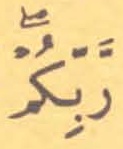 رَّبِّكُمْ ۖ